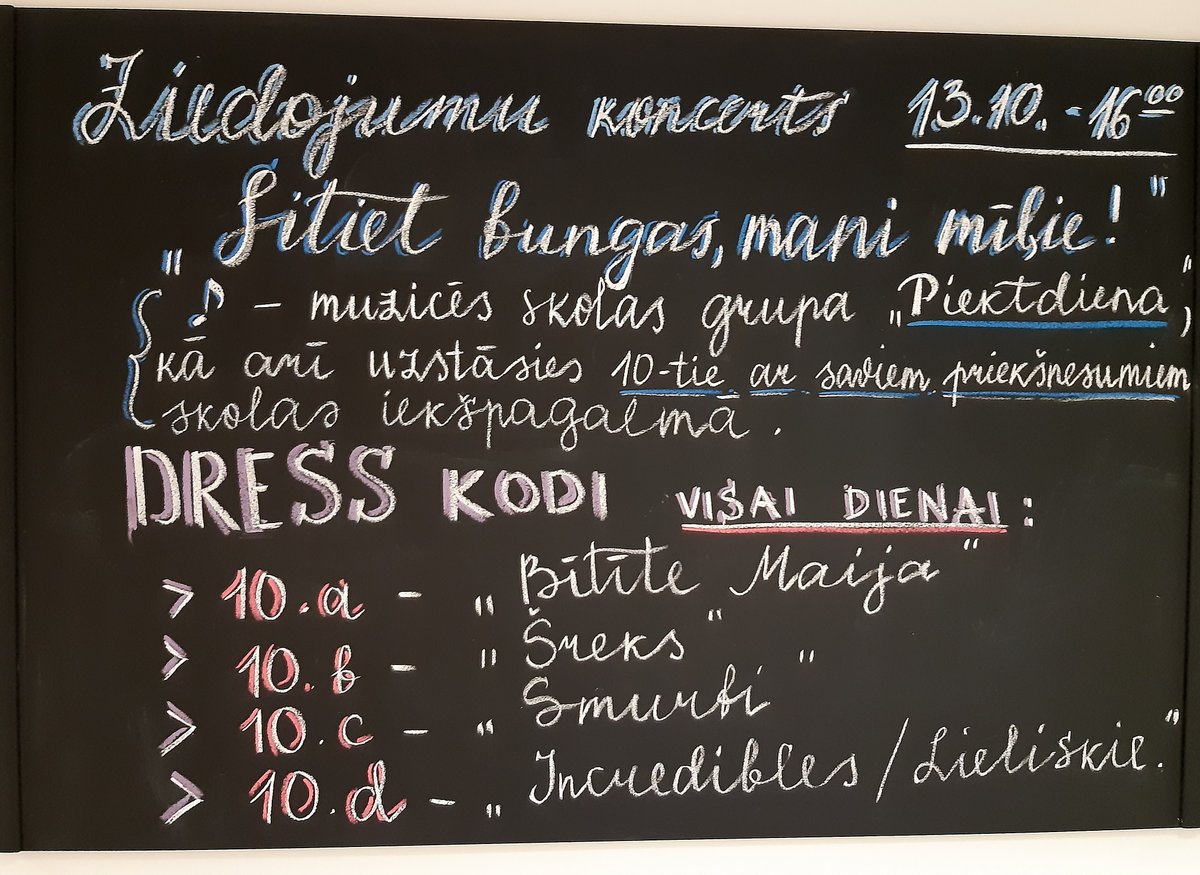 Ziedojumu koncerts 13.10. - 16⁰⁰
"Sitiet bungas, mani mīļie!"
♪ - muzicēs skolas grupa „Piektdiena",
kā arī uzstāsies 10-tie ar saviem priekšnesumiem
skolas iekšpagalmā.
DRESS KODI VISAI DIENAI:
> 10.a - „Bitīte Maija"
> 10.b - "Šreks"
> 10.c - "Smurfi"
> 10.d - „Incredibles / Lieliskie."